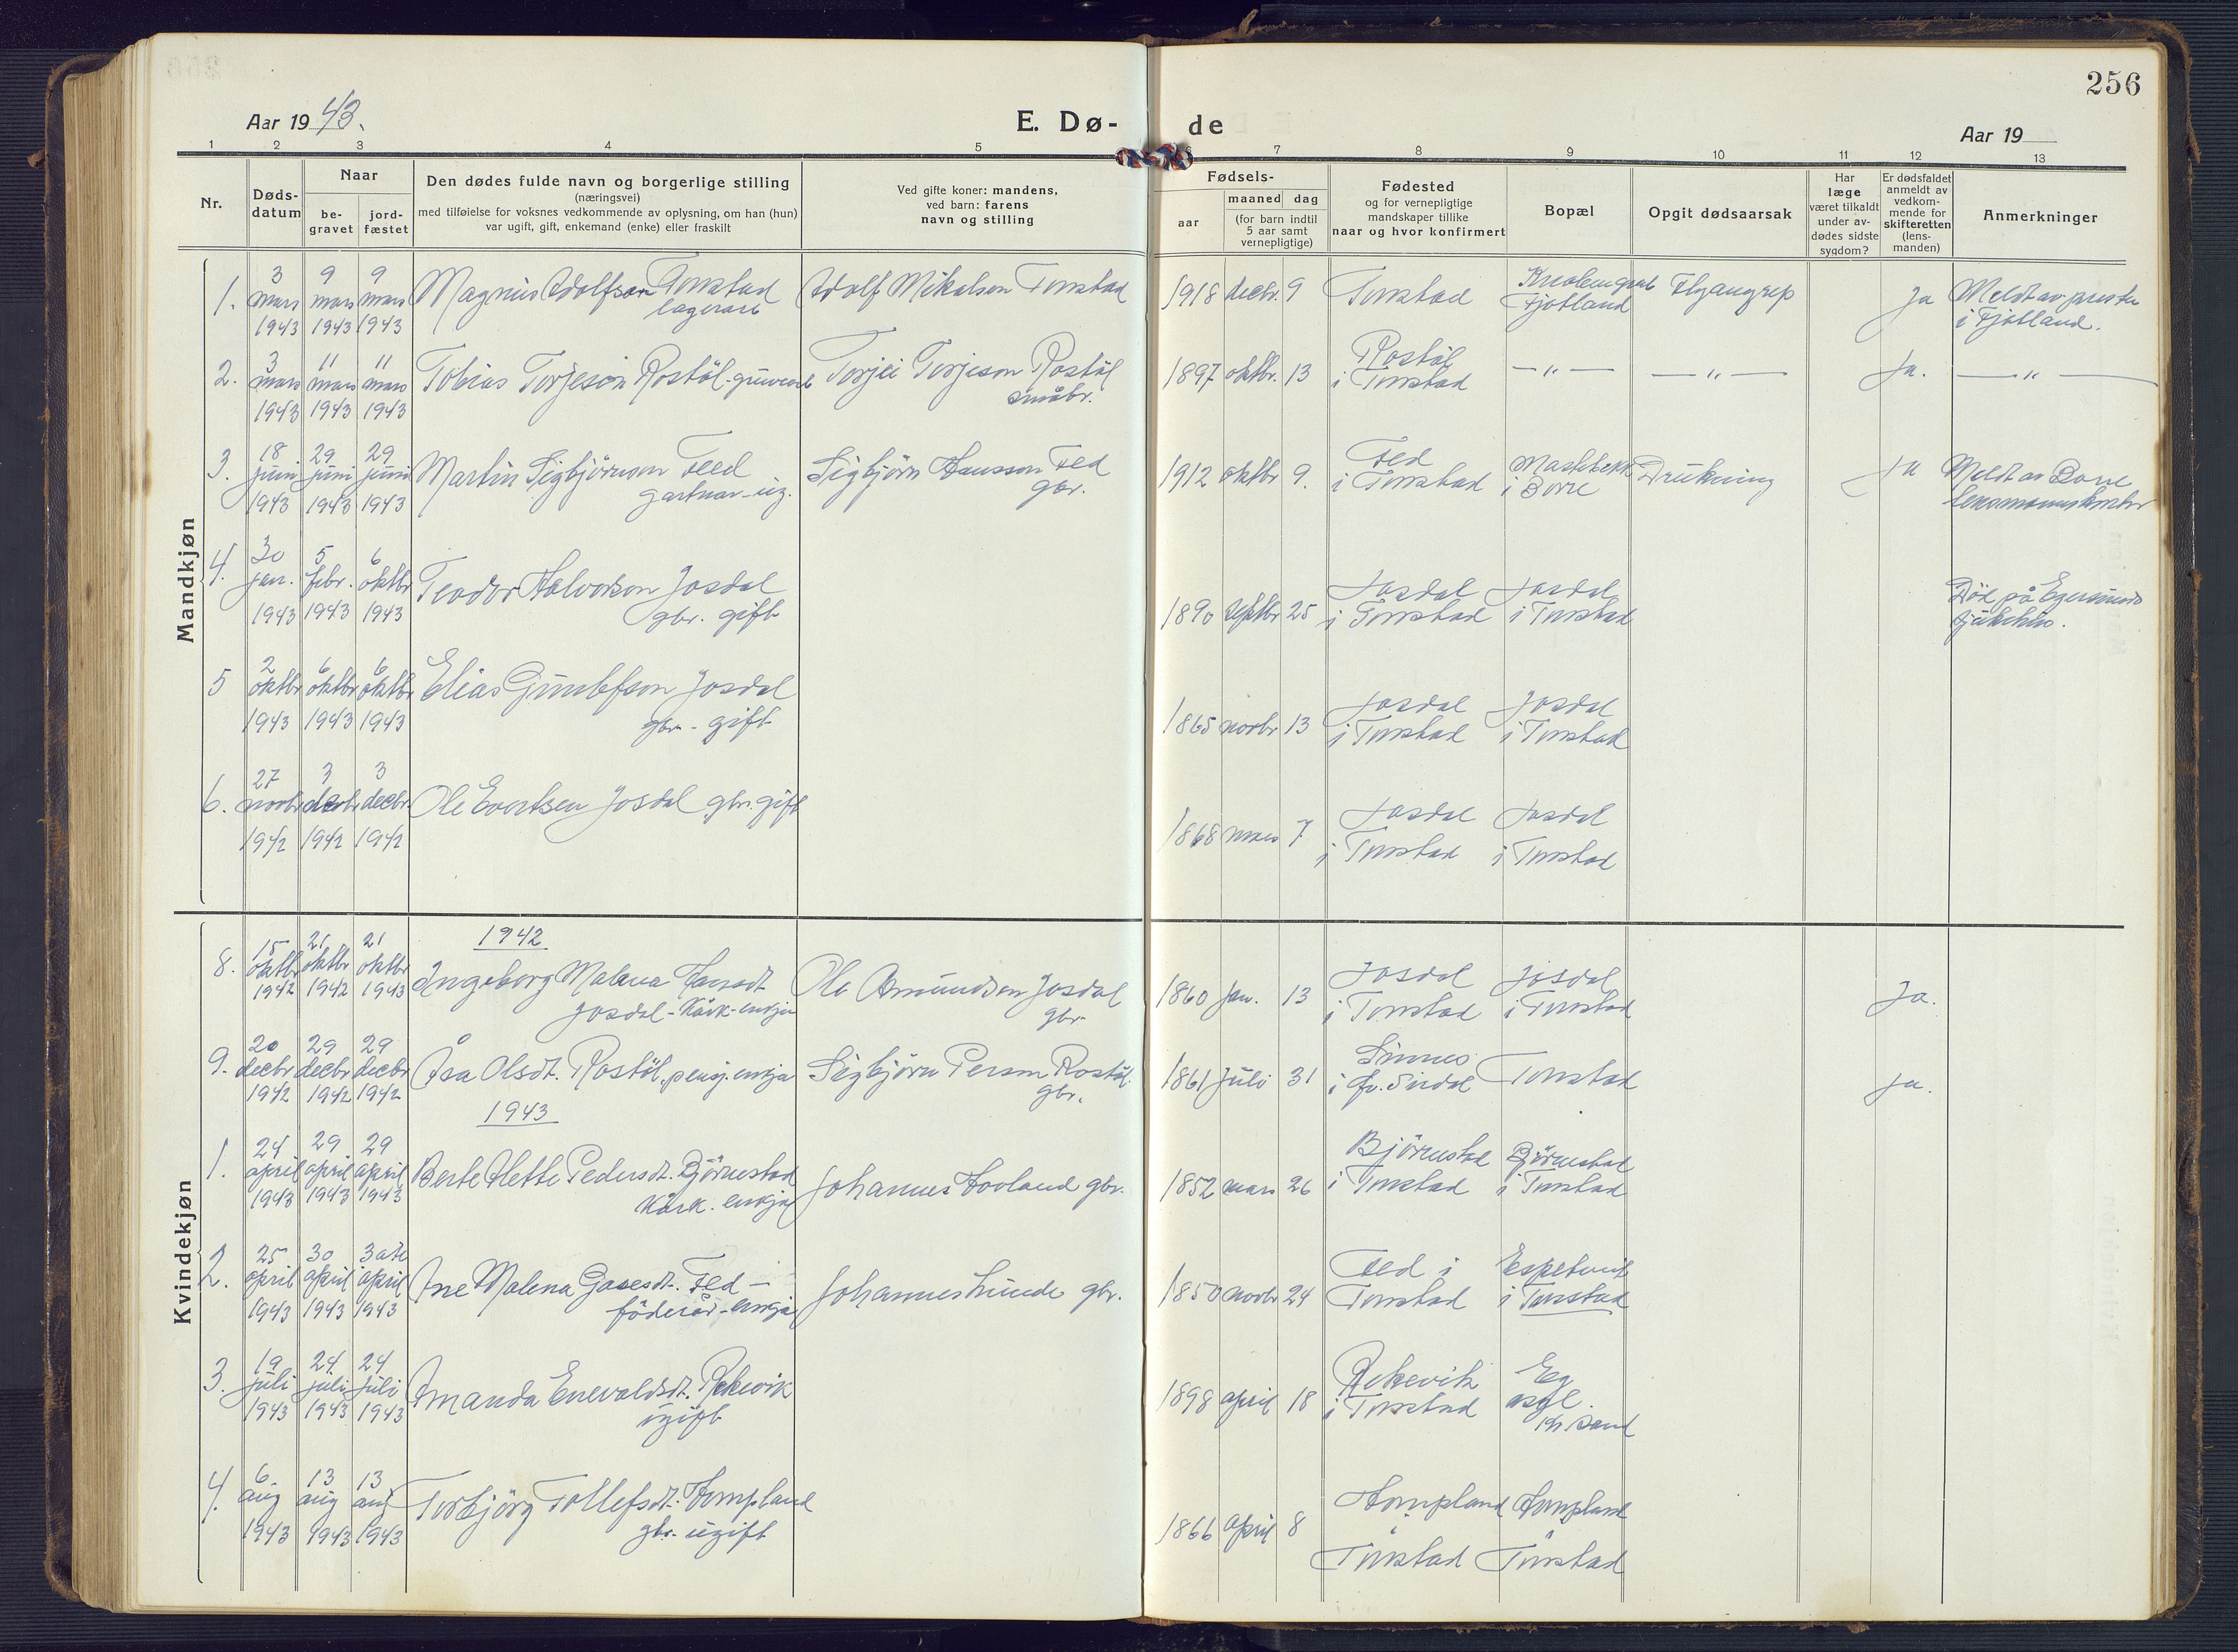 256
Aar 1943.
E. Dø- de
Aar 19
1 2 3 4 5 6 7 8 9 10 11 12 13
Nr.
Døds-
datum
Naar
be-
gravet
jord-
fæstet
Den dødes fulde navn og borgerlige stilling
(næringsvei)
med tilføielse for voksnes vedkommende av oplysning, om han (hun)
var ugift, gift, enkemand (enke) eller fraskilt
Ved gifte koner: mandens,
ved barn: farens
navn og stilling
Fødsels-
aar
maaned dag
(for barn indtil
5 aar samt
vernepligtige)
Fødested
og for vernepligtige
mandskaper tillike
naar og hvor konfirmert
Bopæl
Opgit dødsaarsak
Har
læge
været tilkaldt
under av-
dødes sidste
sygdom?
Er dødsfaldet
anmeldt av
vedkom-
mende for
skifteretten
(lens-
manden)
Anmerkninger
Mandkjøn
3 9 9
1. mars mars mars Magnus Adolfson Tonstad Adolf Mikalsen Tonstad 1918 decbr. 9 Tonstad Fjotland Flyangrep Ja Meldt av presten
1943 1943 1943 i Fjotland.
3 11 11
2. mars mars mars Tobias Torjeson Rostöl Torjei Torjeson Rostöl 1897 oktbr. 13 Rostöl i Tonstad —„— —„— Ja. —„—
1943 1943 1943 småbr.
18 29 29
3. juni juni juni Martin Sigbjörnson Feed Sigbjörn Hansson Fed 1912 oktbr 9. Fed i Tonstad i Borre Drukning Ja Meldt av Borre
1943 1943 1943 gartnar - ug. gbr. lensmannskontor
30 5 6
4. jan. febr. oktbr Teodor Halvorson Josdal 1890 septbr 25 Josdal i Tonstad Josdal i Tonstad Död på Egersund
1943 1943 1943 gbr. gift sjukehus.
2 6 6
5 oktbr oktbr oktbr Elias Gunlefson Josdal 1865 novbr 13 Josdal i Tonstad Josdal i Tonstad
1943 1943 1943 gbr - gift
27 3 3
6. novbr decbr decbr. Ole Evertsen Josdal gbr. gift 1868 mars 7 Josdal i Tonstad Josdal i Tonstad
1942 1942 1942
Kvindekjøn
1942
15 21 21
8. oktbr oktbr oktbr Ingeborg Malena Hansdt. Ole Amundsen Josdal 1860 jan. 13 Josdal i Tonstad Josdal i Tonstad Ja.
1942 1942 1943 Josdal - kårk - enkja gbr.
20 29 29
9. decbr decbr decbr Åsa Olsdt. Rostöl, pensj. enkja Sigbjörn Person Rostöl 1861 juli 31 Sinnes i öv. Sirdal Tonstad Ja.
1942 1942 1942 gbr.
1943
24 29 29
1. april april april Berte Mette Pedersdt. Björnestad Johannes Hovland gbr. 1852 mars 26 Björnestad i Tonstad Björnestad i Tonstad
1943 1943 1943 kårk. enkja
25 30 30te
2. april april april Ane Malena Gasesdt. Fed — Johannes Lunde gbr. 1850 novbr 24 Fed i Tonstad i Tonstad
1943 1943 1943 föderår - enkja
19 24 24
3. juli juli juli Amanda Enevaldsdt. Rekevik 1898 april 18 Rekevik i Tonstad Eg asyl.
1943 1943 1943 ugift Kr. sand
6 13 13
4. aug aug aug Torbjörg Tollefsdt. Hompland 1866 april 8 Hompland Hompland
1943 1943 1943 gbr. ugift Tonstad Tonstad